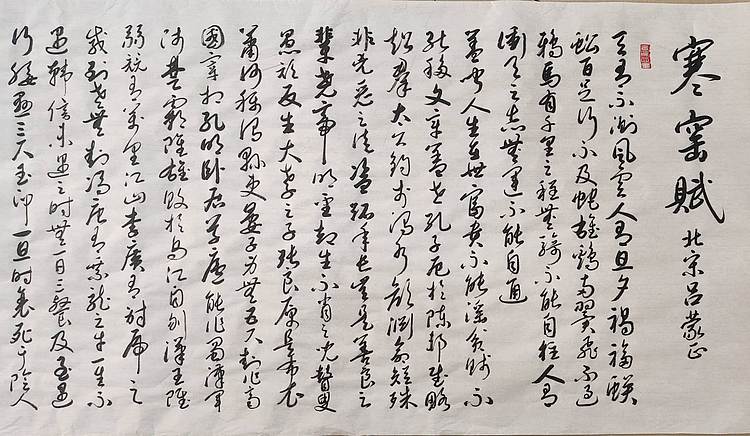 寒窰賦 北宋呂蒙正
天有不測風雲人有旦夕禍福蜈
蚣百足行不及蛇雄鷄兩翼飛不過
鴉馬有千里之程無騎不能自往人有
衝天之志無運不能自通
蓋聞人生在世富貴不能淫貧賤不
能移文章蓋世孔子厄於陳邦武略
超群太公釣於渭水顏淵命短殊
非兇惡之徒盜跖年長豈是善良之
輩堯帝明聖却生不肖之兒瞽叟
愚頑反生大孝之子張良原是布衣
蕭何稱謂縣吏晏子身無五尺封作齊
國宰相孔明卧居草廬能作蜀漢軍
師楚霸雖雄敗於烏江自刎漢王雖
弱竟有萬里江山李廣有射虎之
威到老無封馮唐有乘龍之才一生不
遇韓信未遇之時無一日三餐及至遇
行腰懸三尺玉印一旦時衰死于陰人